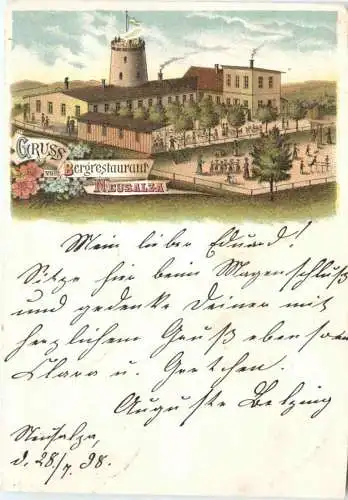 GRUSS
vom Bergrestaurant
NEUSALZA
Mein lieber Eduard!
Sitze hier beim Magenschluß
und gedenke Deiner mit
herzlichem Gruß ebenso
Clara u. Gretchen.
Auguste
Neusalza,
d. 28/7. 98.